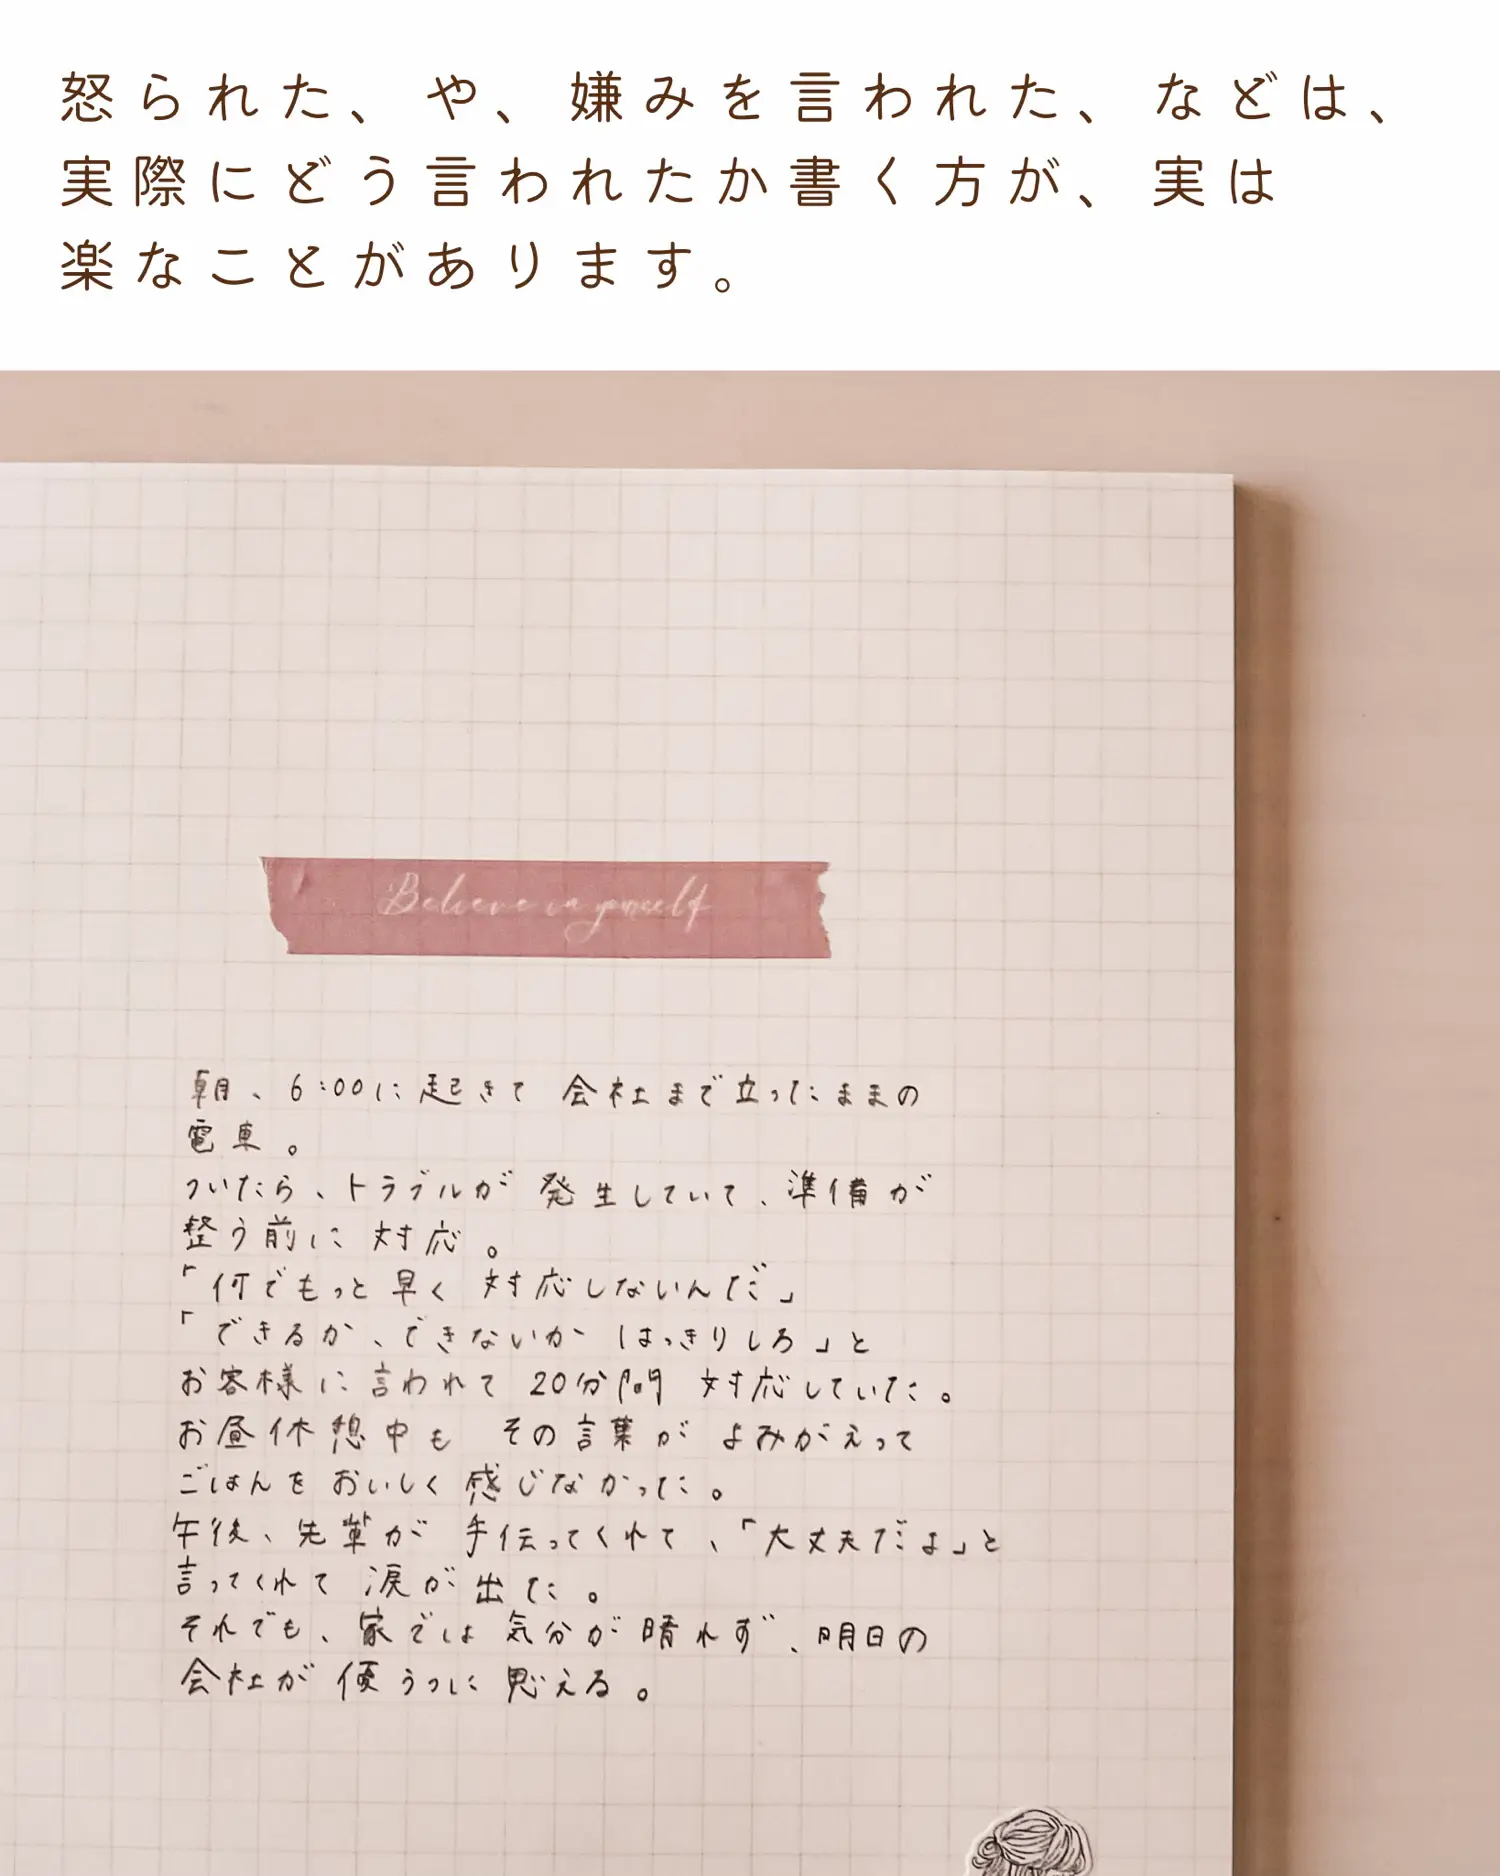 怒られた、や、嫌みを言われた、などは、
実際にどう言われたか書く方が、実は
楽なことがあります。
Believe in yourself
朝、6:00に起きて 会社まで立ったままの
電車。
ついたら、トラブルが 発生していて、準備が
整う前に 対応。
「何でもっと早く 対応しないんだ」
「できるか、できないか はっきりしろ」と
お客様に言われて 20分間 対応していた。
お昼休憩中も その言葉が よみがえって
ごはんを おいしく 感じなかった。
午後、先輩が 手伝ってくれて、「大丈夫だよ」と
言ってくれて 涙が 出た。
それでも、家では 気分が 晴れず、明日の
会社が 優うつに 思える。